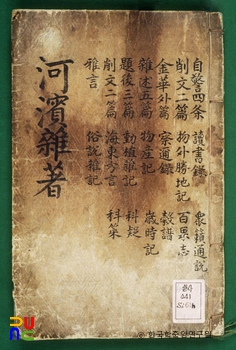 自警四条 讀書錄 衆籟通說
削文二篇 物外勝地記 百果志
金華外篇 察通錄 穀譜
雜述五篇 物産記 歲時記
題後三篇 動植雜記 科
削文二篇 海東今言 科策
雅言 俗說雜記
河濱雜著
441
© 한국학중앙연구원